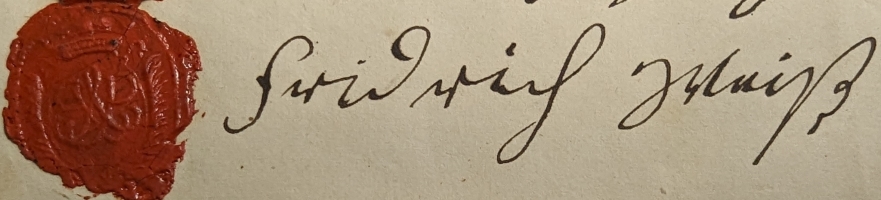 Fridrich Weiß